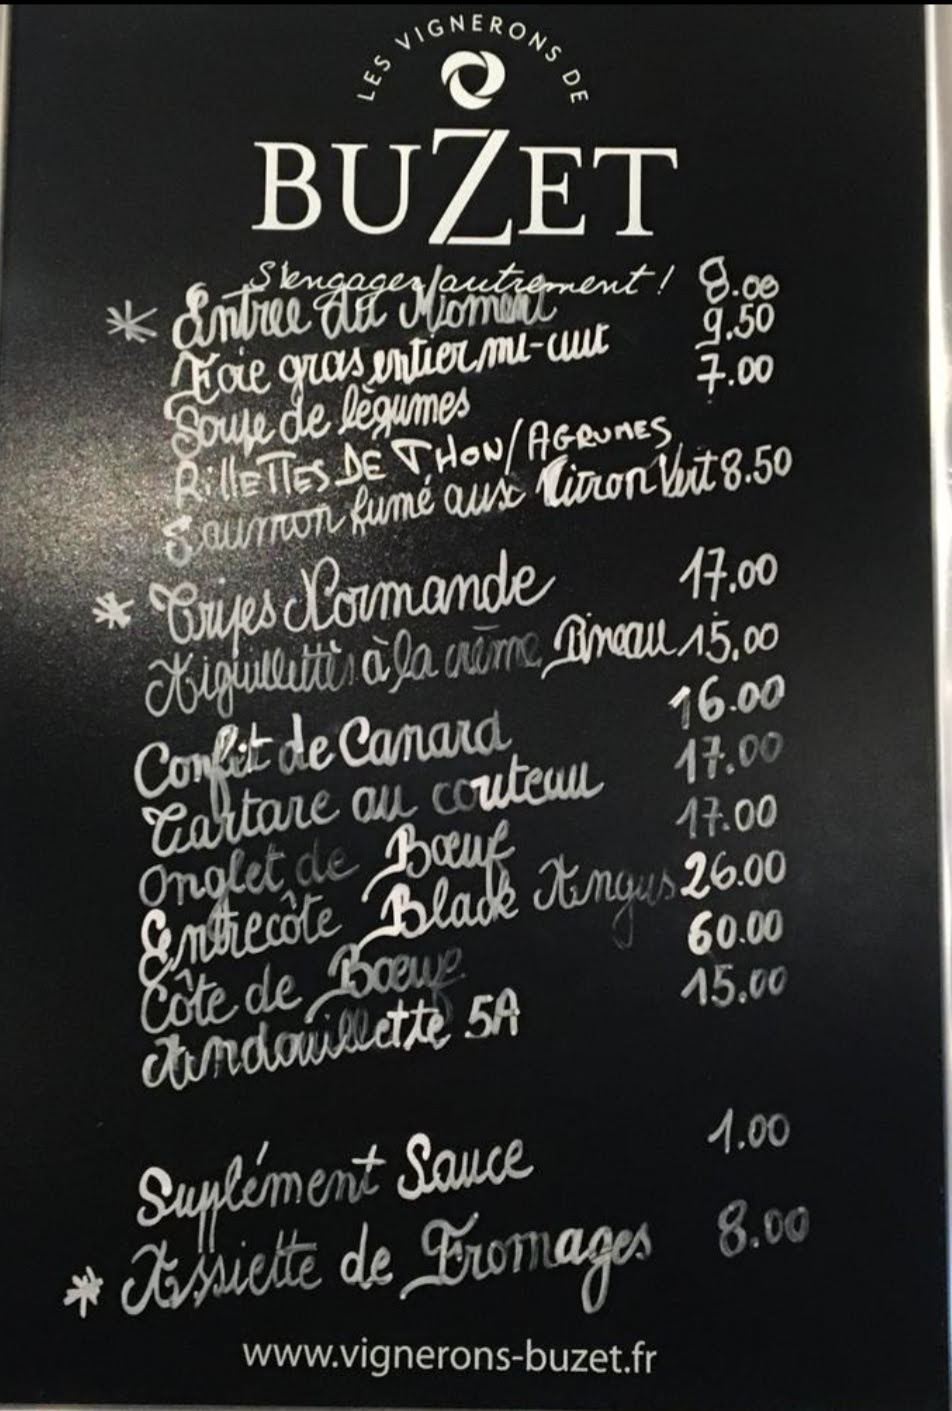 LES VIGNERONS DE
BUZET
S'engager autrement !
* Entree du Moment 8.00
Foie gras entier mi-cuit 9.50
Soupe de légumes 7.00
RillETTES DE THON/AGRUMES
Saumon fumé aux Citron Vert 8.50
* Tripes Normande 17.00
Aiguillettes à la crème Pineau 15,00
Confit de Canard 16.00
Tartare au couteau 17.00
Onglet de Bœuf 17.00
Entrecôte Black Angus 26.00
Côte de Bœuf 60.00
Andouillette 5A 15.00
Suplément Sauce 1.00
* Assiette de Fromages 8.00
www.vignerons-buzet.fr